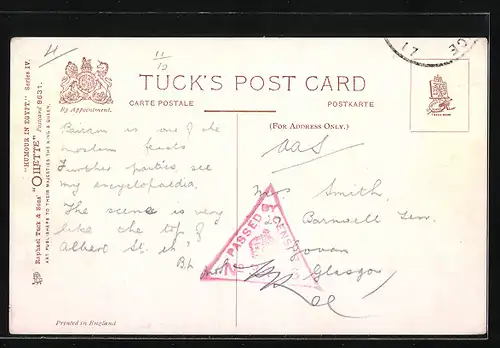 4
11/10
CE
17
TUCK'S POST CARD
By Appointment.
CARTE POSTALE
POSTKARTE
(FOR ADDRESS ONLY.)
TRADE MARK
"HUMOUR IN EGYPT." Series IV.
Raphael Tuck & Sons' "OILETTE" Postcard 9631.
ART PUBLISHERS TO THEIR MAJESTIES THE KING & QUEEN.
Bairam is one of the
moslem feasts
Further parties, see
my encyclopædia,
The scene is very
like the top of
Albert St. in
OAS
Mrs. Smith,
20 Barnwell Terr.
Govan
Glasgow
PASSED BY CENSOR
Printed in England